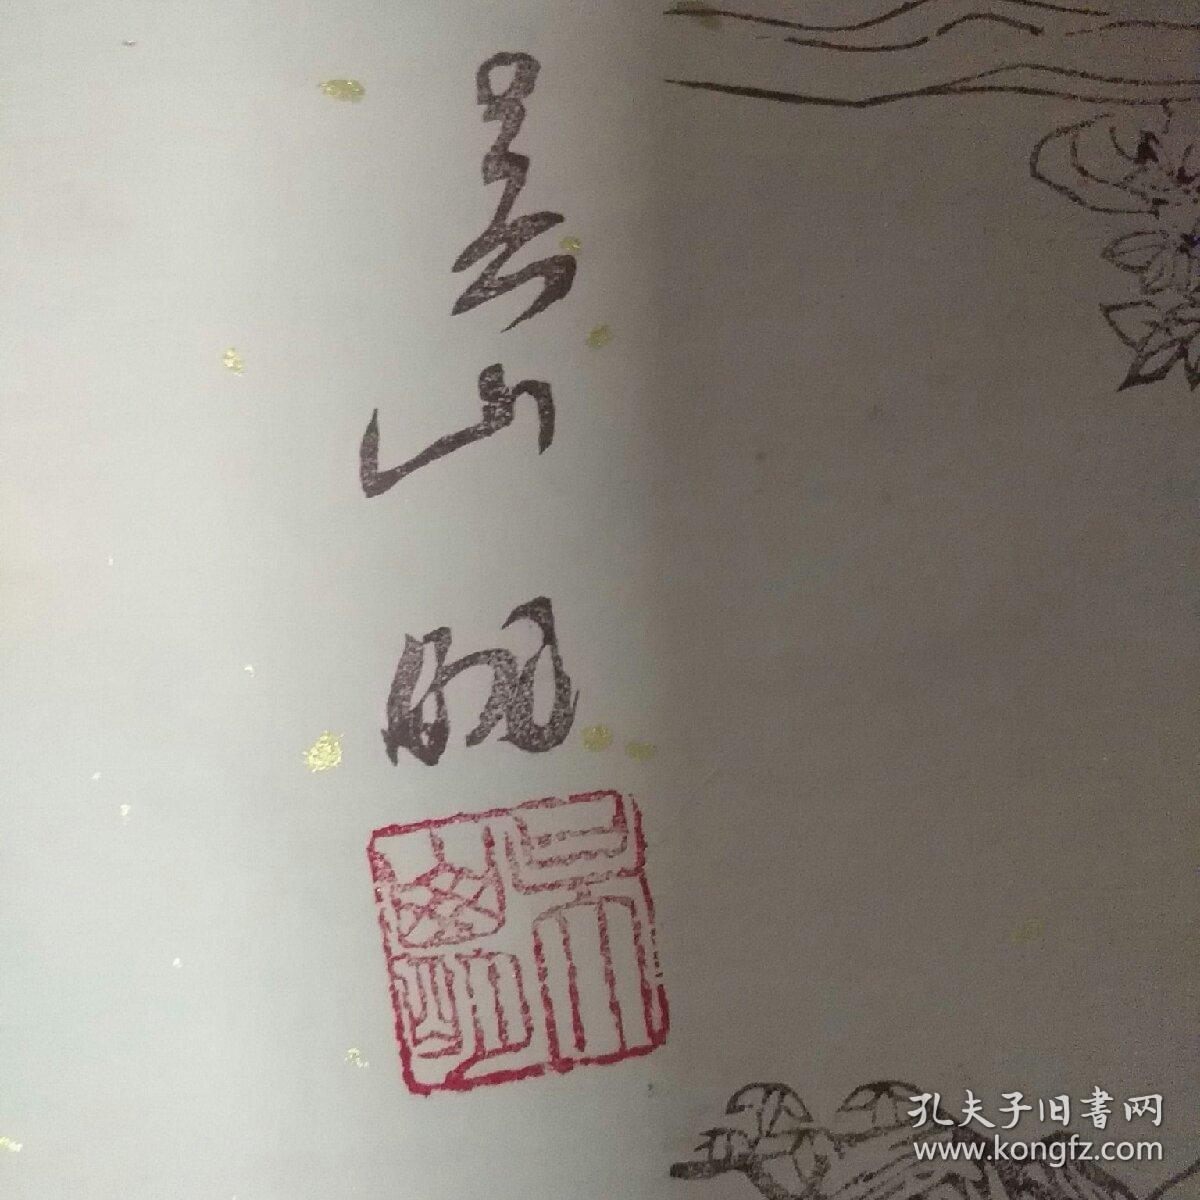 吴山明
孔夫子旧書网
www.kongfz.com